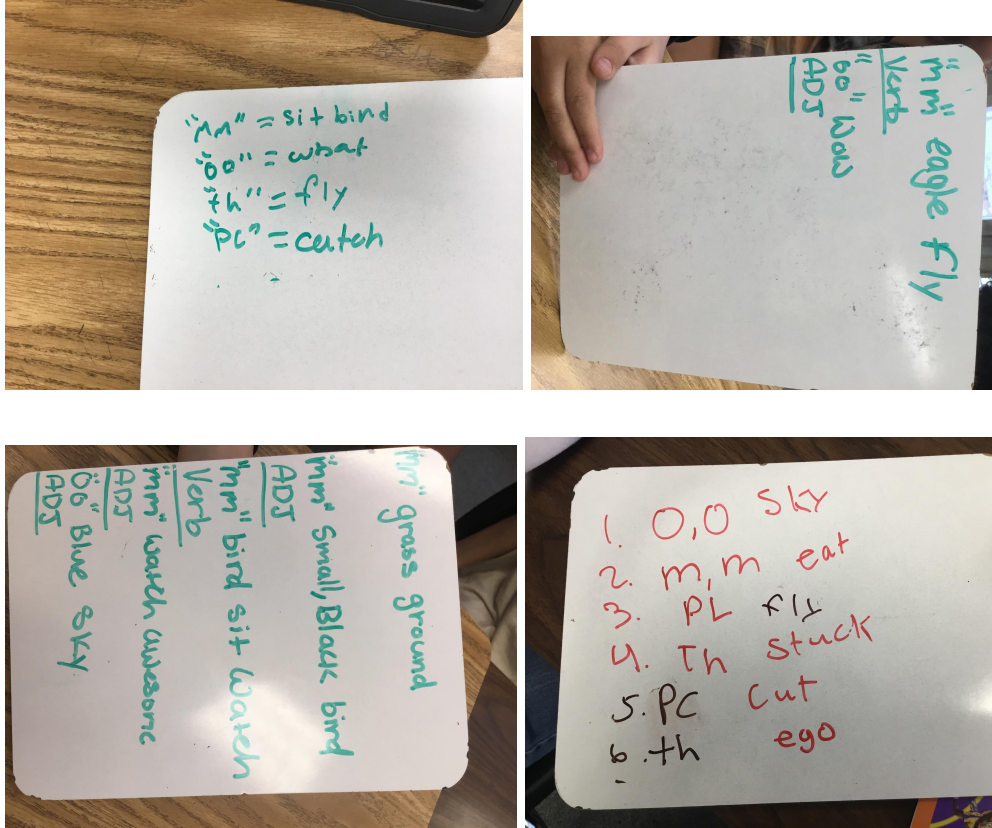 "MM" = sit bind
"oo" = what
"th" = fly
"PC" = catch
"mm" eagle fly
Verb
"oo" Wow
ADJ
"mm" grass ground
"mm" Small, Black bird
ADJ
"mm" bird sit Watch
Verb
"mm" watch Awesome
ADJ
"oo" Blue Sky
ADJ
1. O,O Sky
2. m,m eat
3. PL fly
4. Th stuck
5. PC Cut
6. th ego